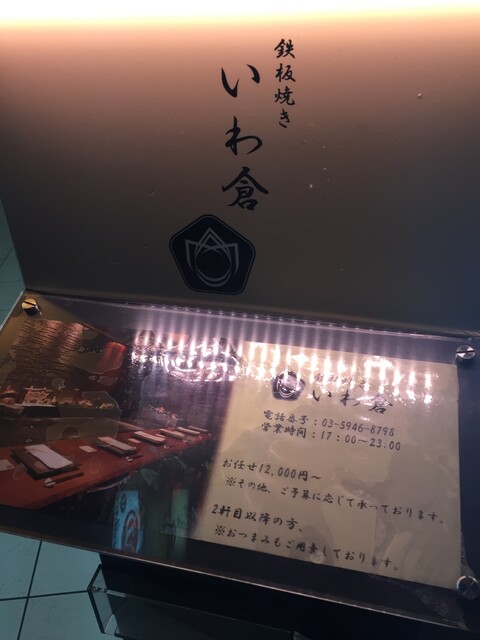 鉄板焼き
いわ倉
いわ倉
電話番号：03-5946-8798
営業時間：17：00〜23:00
お任せ12,000円〜
※その他、ご予算に応じて承っております。
2軒目以降の方、
※おつまみもご用意しております。